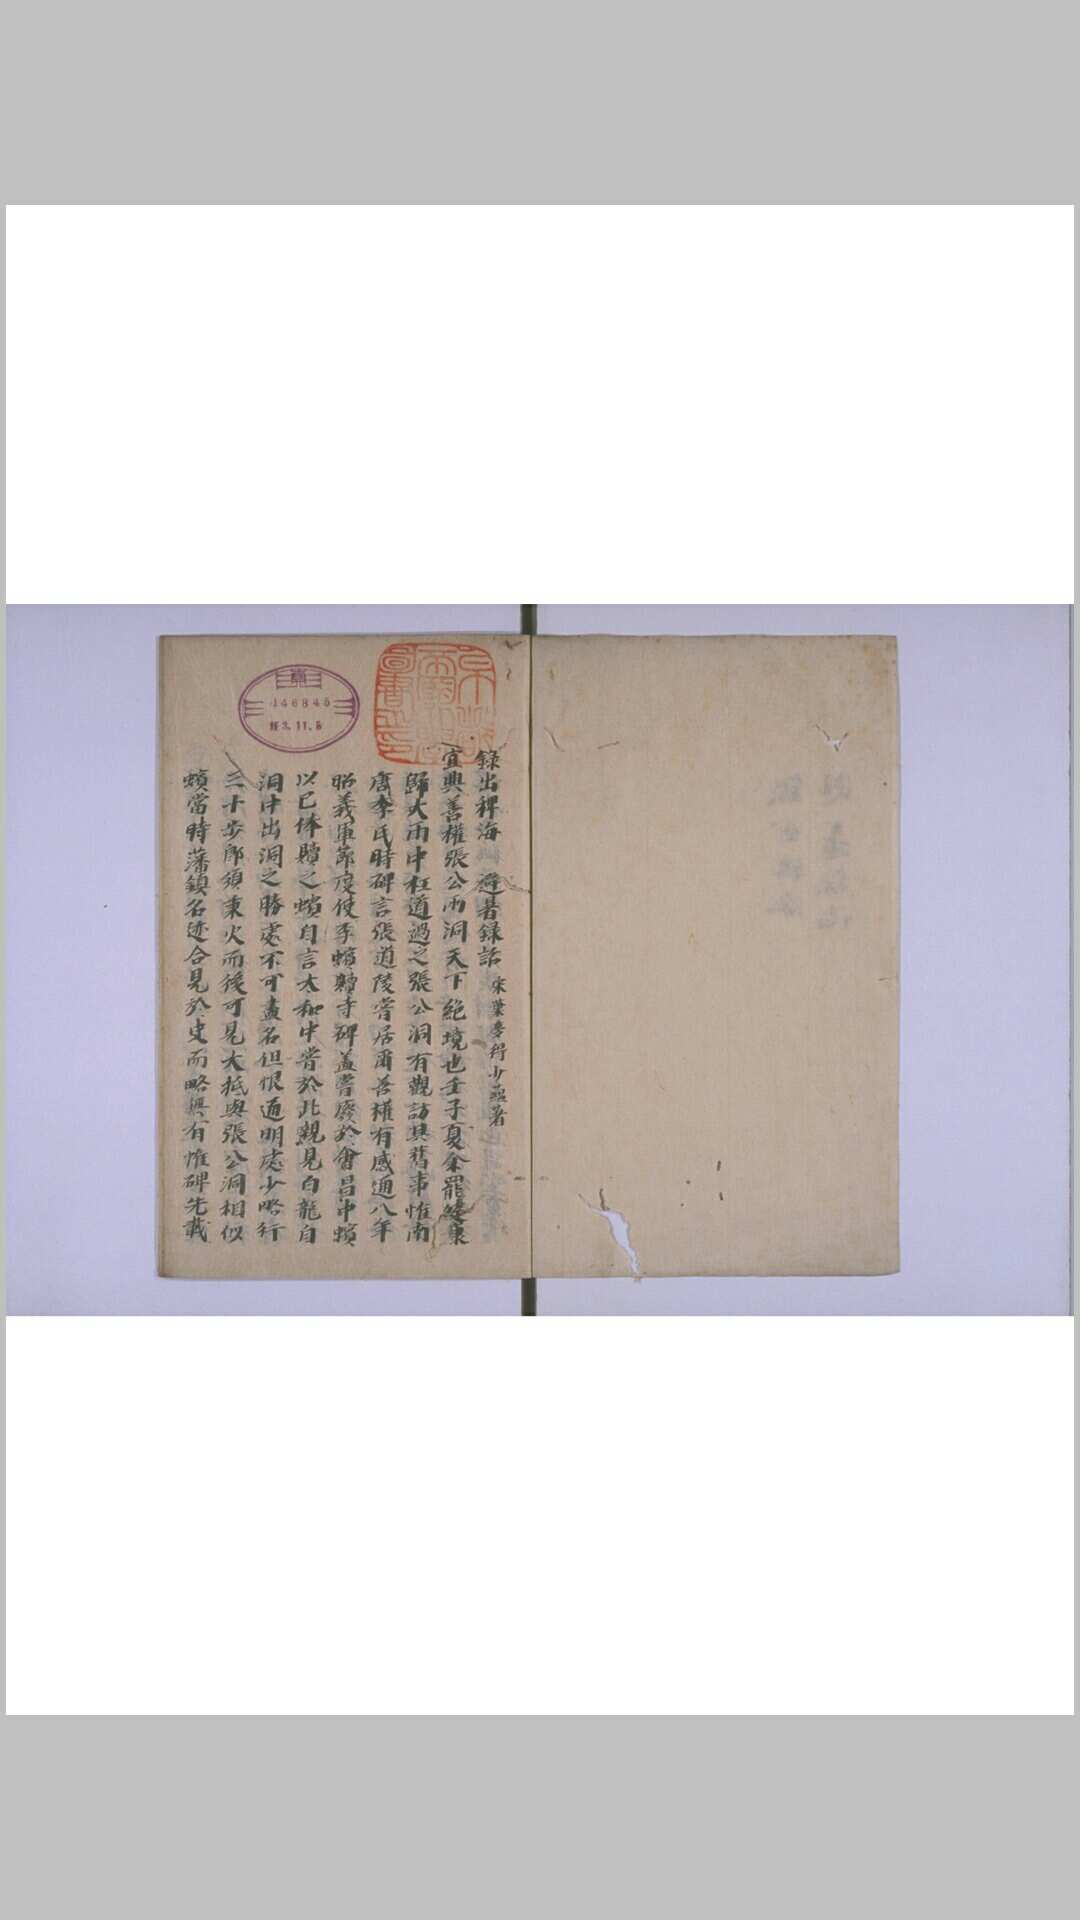 錄出稗海 避暑録話 宋葉夢得少蘊著
宜興善權張公兩洞天下絶境也壬子夏余罷建康
歸大雨中枉道過之張公洞有觀訪其舊事惟南
唐李氏時碑言張道陵嘗居爾善權有咸通八年
昭義軍節度使李蠙贖寺碑蓋嘗廢於會昌中蠙
以已俸贖之蠙自言太和中嘗於此親見白龍自
洞中出洞之勝處不可盡名但恨通明處少略行
三十步即須束火而後可見大抵與張公洞相似
蠙當時藩鎮名迹合見於史而略無有惟碑先載
146845
昭3.11.5